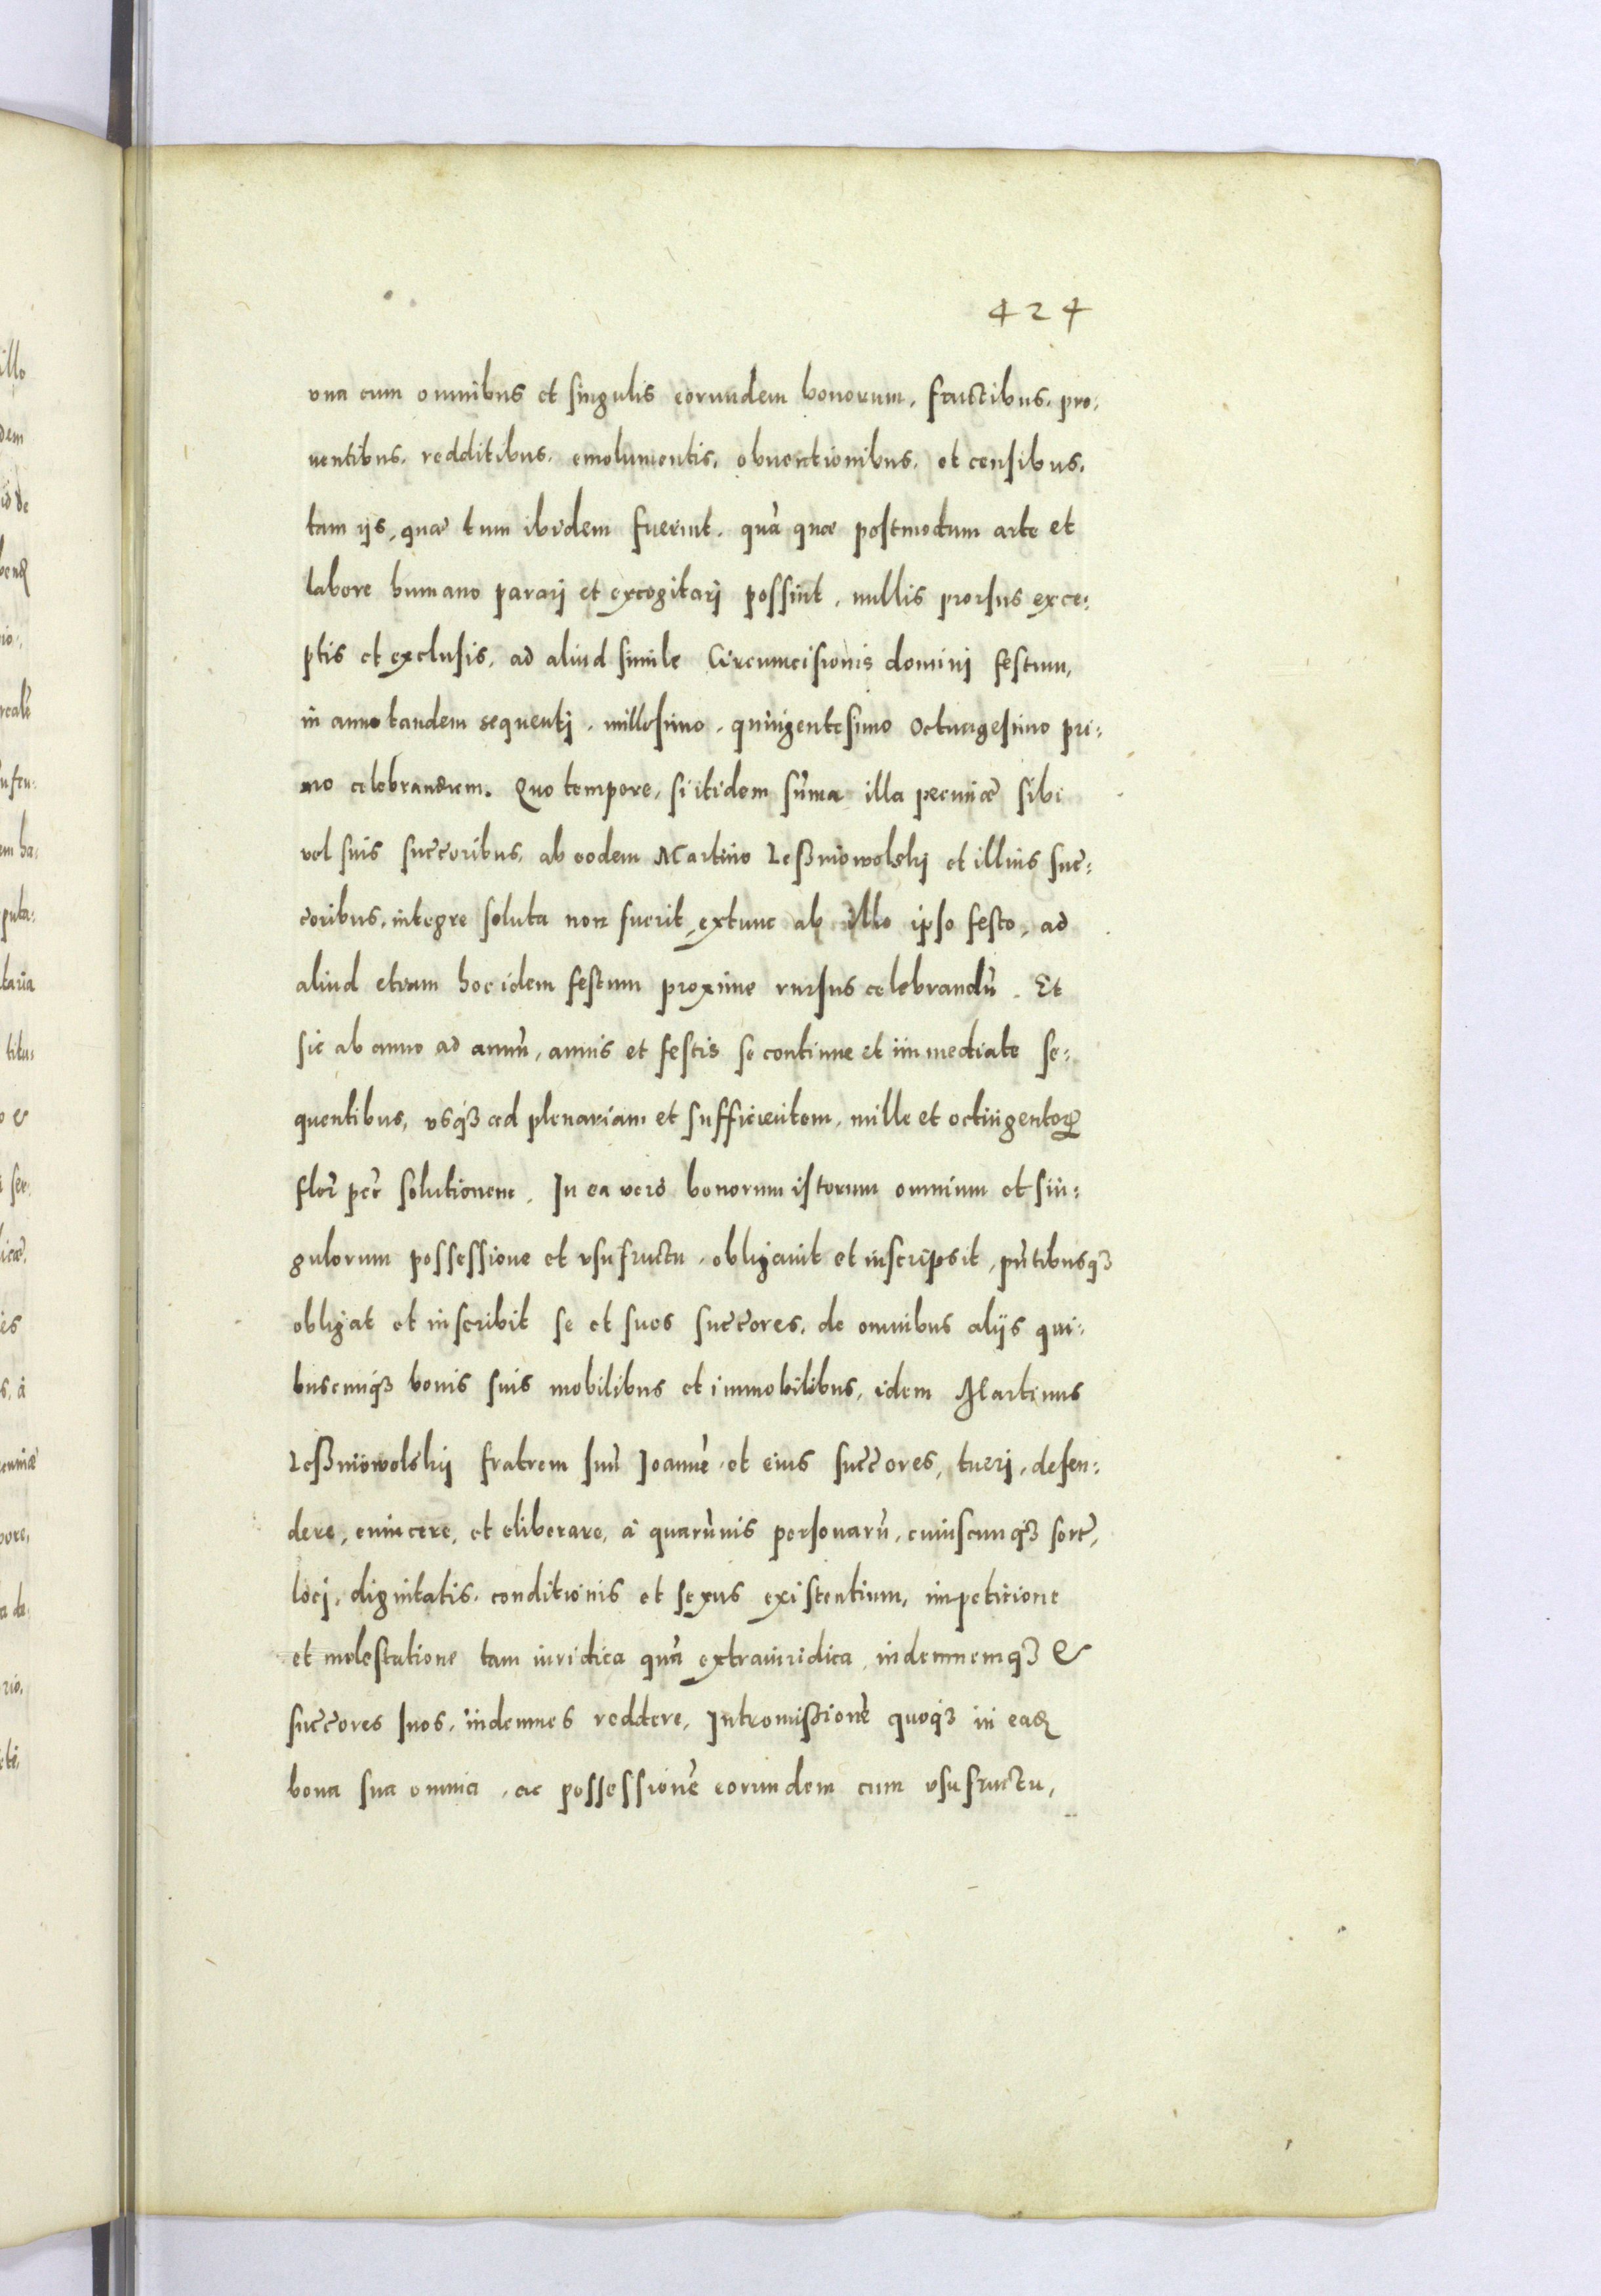 424
vna cum omnibus et singulis eorundem bonorum, fructibus, pro:
uentibus, redditibus, emolumentis, obuentionibus, et censibus,
tam ijs, quæ tum ibidem fuerint, quã quæ postmodum arte et
labore humano pararj et excogitarj possint, nullis prorsus exce:
ptis et exclusis, ad aliud simile Circumcisionis dominj festum,
in anno tandem sequentj, millesimo, quingentesimo octuagesimo pri:
mo celebrandum. Quo tempore, si itidem sũma illa pecuniæ sibi
vel suis succ̃oribus, ab eodem Martino Leßniowolskj et illius suc̃:
c̃oribus, integre soluta non fuerit, extunc ab illo ipso festo, ad
aliud etiam hoc idem festum proxime rursus celebrandũ. Et
sic ab anno ad annũ, annis et festis se continue et immediate se:
quentibus, vsq́ꝫ ad plenariam et sufficientem, mille et octingentoꝝ
flor̃ pec̃ solutionem. In ea vero bonorum istorum omnium et sin:
gulorum possessione et vsufructu, obligauit et inscripsit, pñtibusqꝫ
obligat et inscribit se et suos succ̃ores, de omnibus alijs qui:
buscunqꝫ bonis suis mobilibus et immobilibus, idem Martinus
Leßniowolskij fratrem suũ Joannẽ, et eius succ̃ores, tuerj, defen:
dere, euincere, et eliberare, à quarũuis personarũ, cuiuscunqꝫ sort̃,
locj, dignitatis, conditionis et sexus existentium, impeticione
et molestatione tam iuridica quã extraiuridica, indemnemqꝫ &
succ̃ores suos, indemnes reddere, Intromißionẽ quoqꝫ in eaꝫ
bona sua omnia, ac possessionẽ eorundem cum vsufructu,
illo
dem
puta:
taria
titu: